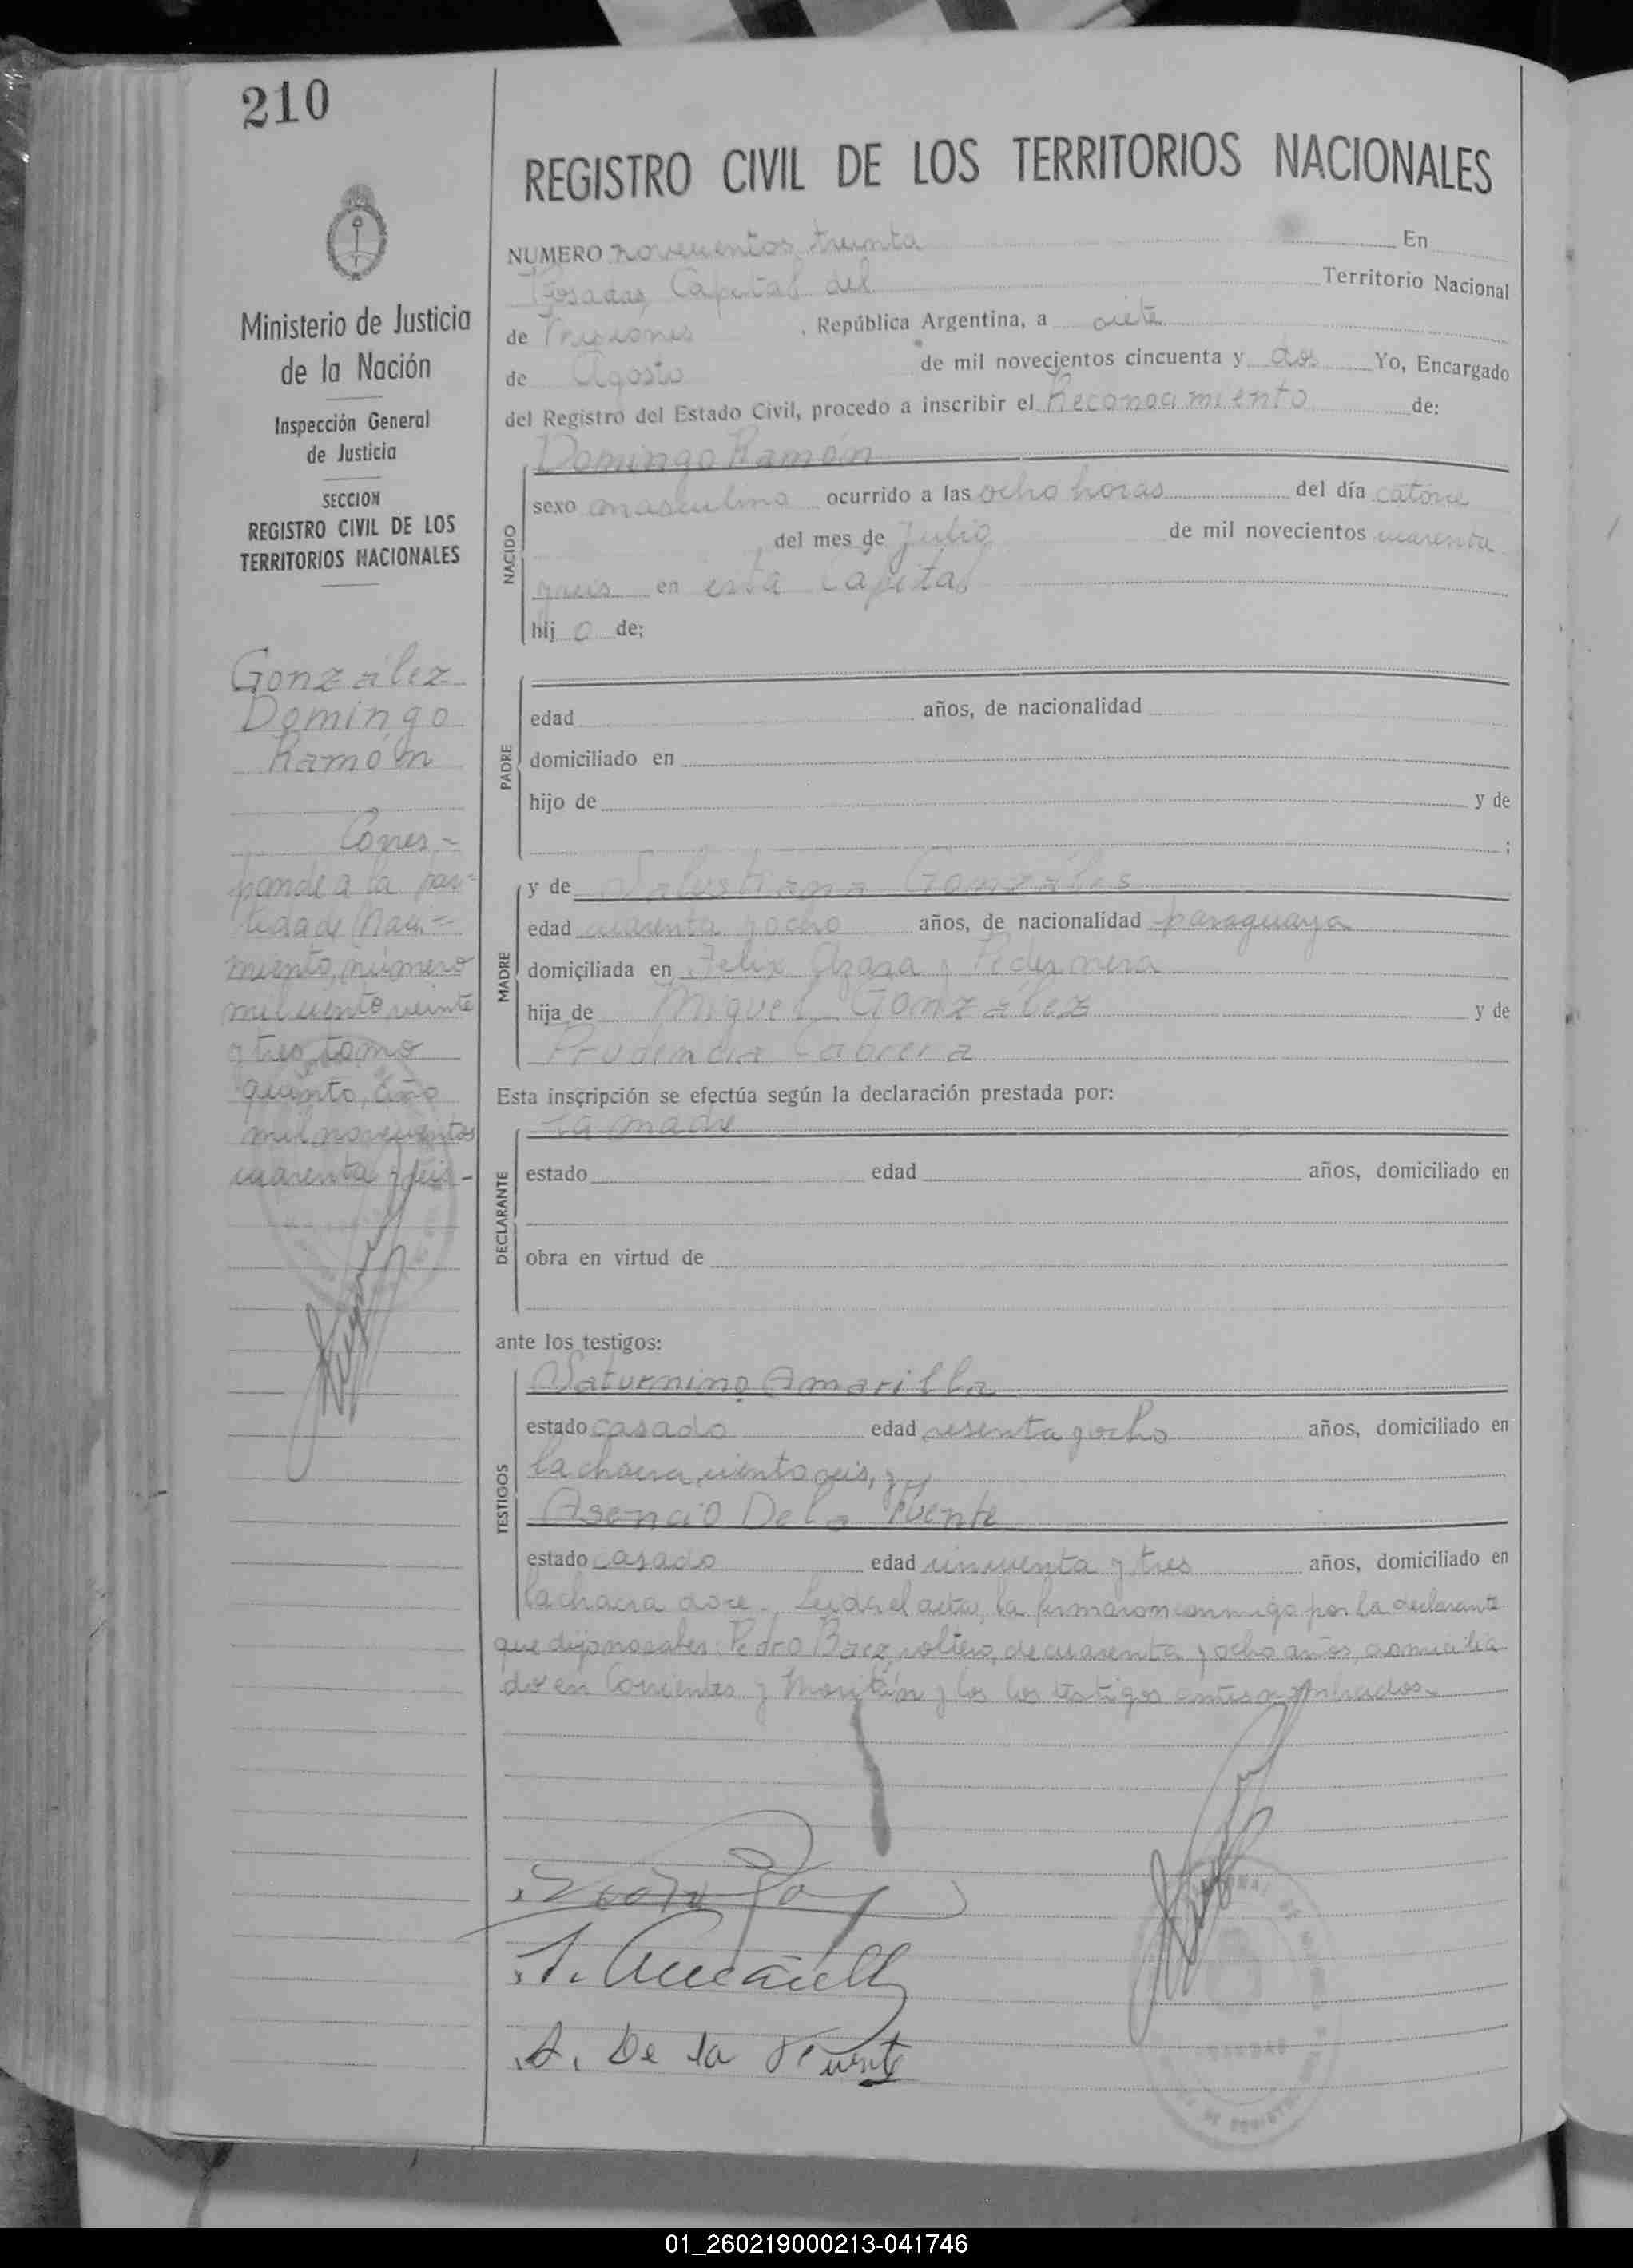 210
REGISTRO CIVIL DE LOS TERRITORIOS NACIONALES
NUMERO novecientos treinta En
Posadas, Capital del Territorio Nacional
de Misiones , República Argentina, a siete
de Agosto de mil novecientos cincuenta y dos Yo, Encargado
del Registro del Estado Civil, procedo a inscribir el Reconocimiento de:
Domingo Ramón
sexo masculino ocurrido a las ocho horas del día catorce
del mes de Julio de mil novecientos cuarenta
y seis en esta Capital
hij o de:
NACIDO
edad años, de nacionalidad
domiciliado en
hijo de y de
;
PADRE
y de Salustiana González
edad cuarenta y ocho años, de nacionalidad paraguaya
domiciliada en Felix Azara y Pedernera
hija de Miguel González y de
Prudencia Cabrera
MADRE
Esta inscripción se efectúa según la declaración prestada por:
la madre
estado edad años, domiciliado en
obra en virtud de
DECLARANTE
ante los testigos:
Saturnino Amarilla
estado casado edad sesenta y ocho años, domiciliado en
la chacra ciento seis, y
Asencio De la Fuente
estado casado edad cincuenta y tres años, domiciliado en
la chacra doce. Leida el acta, la firmaron conmigo por la declarante
TESTIGOS
que dijo no saber: Pedro Báez, soltero, de cuarenta y ocho años, domicilia
do en Corrientes y y los los testigos antes nombrados.
S. Amarilla
A. De la Fuente
Ministerio de Justicia
de la Nación
Inspección General
de Justicia
SECCION
REGISTRO CIVIL DE LOS
TERRITORIOS NACIONALES
González
Domingo
Ramón
Corres-
ponde a la par-
tida de Naci-
miento, número
mil ciento veinte
y tres, tomo
quinto, año
mil novecientos
cuarenta y seis-
01_260219000213-041746